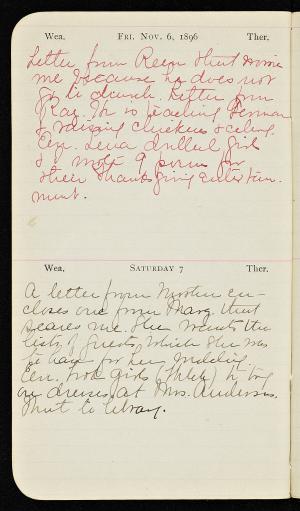 Wea. FRI. NOV. 6, 1896 Ther.
Letter from that
me because he does not
go to church. Letter from
Rae. He is teaching German
& raising chickens & celery.
Eve. Lena drilled girls
for
their Thanksgiving Entertain-
ment.
Wea. SATURDAY 7 Ther.
A letter from Mother en-
closes one from Marg that
scares me. She wants the
list of guests, which she was
to have for her wedding.
Eve. Took girls to try
on dresses at Mrs. Anderson's.
Went to library.